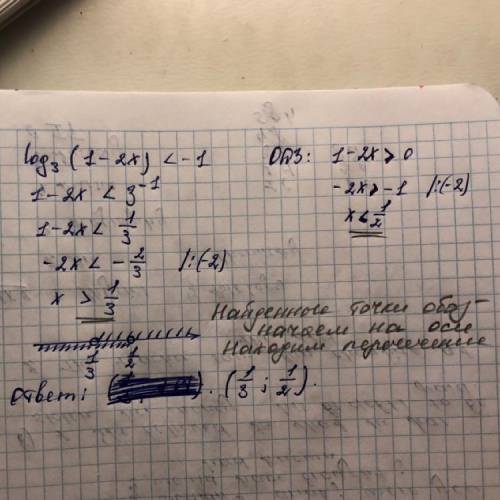 log₃(1-2x) < -1
1-2x < 3⁻¹
1-2x < 1/3
-2x < -2/3 /:(-2)
x > 1/3
ОДЗ: 1-2x > 0
-2x > -1 /:(-2)
x < 1/2
Найденные точки обоз-
начаем на оси
Находим пересечение
1/3 1/2
Ответ: (1/3 ; 1/2).